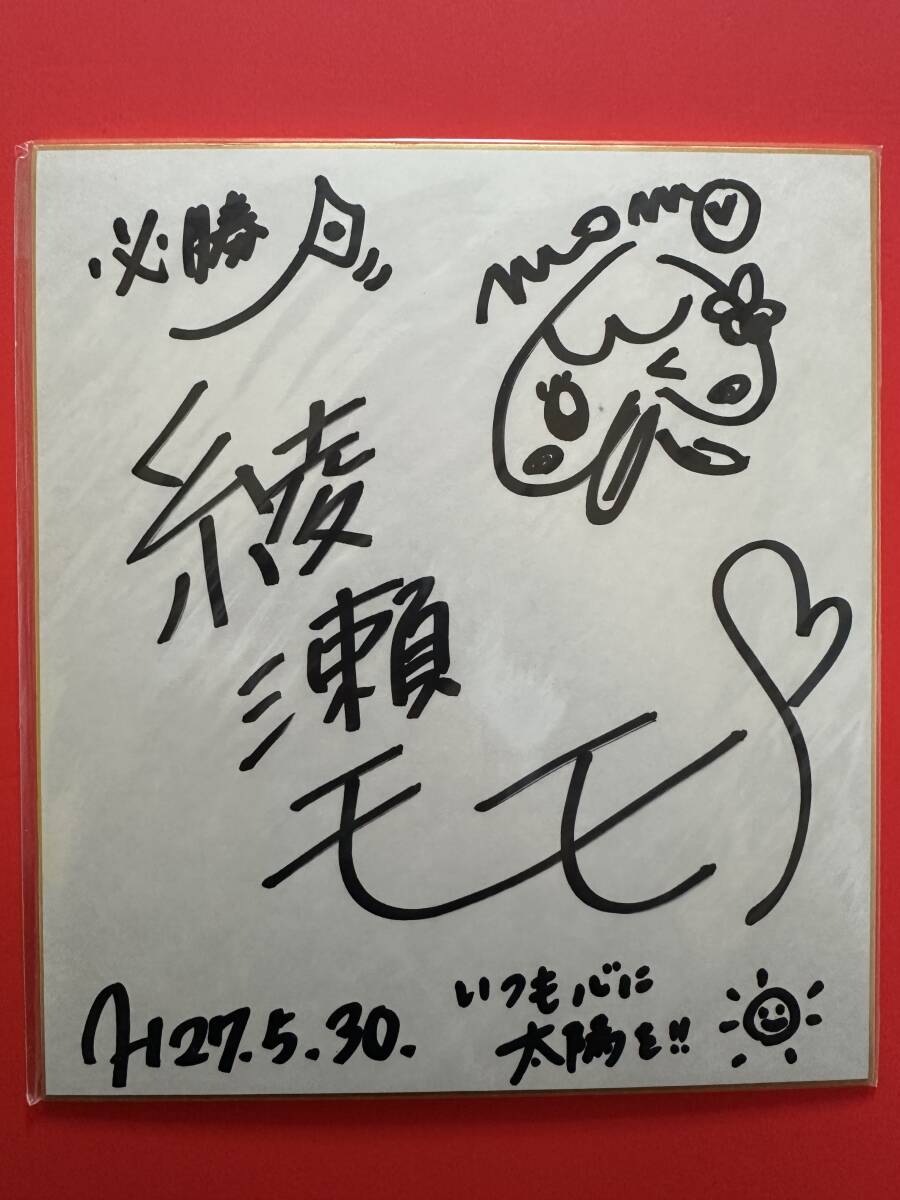 必勝
momo
綾
瀬
モモ
H27.5.30.
いつも心に
太陽を!!